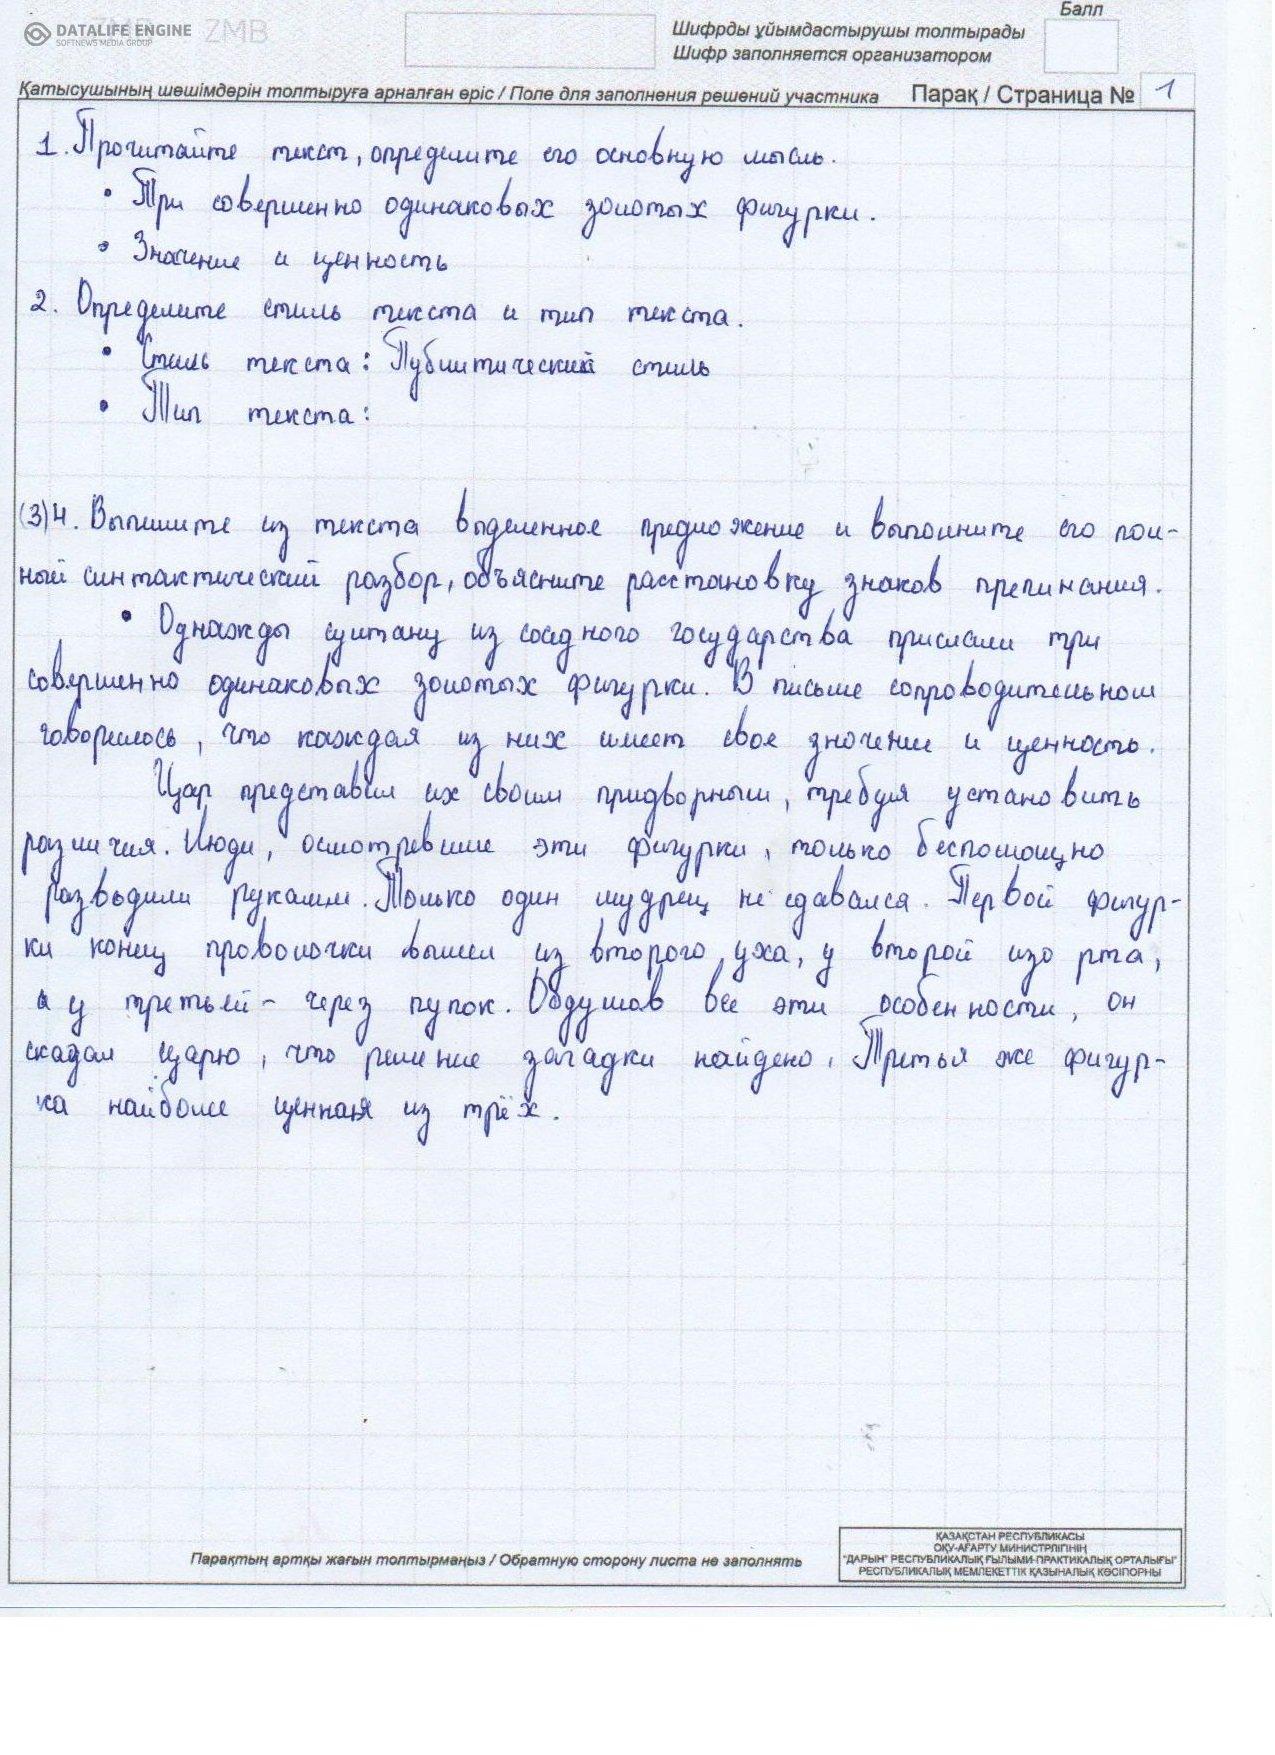 DATALIFE ENGINE
SOFTNEWS MEDIA GROUP
ZMB ZMB
Балл
Шифрды ұйымдастырушы толтырады
Шифр заполняется организатором
Қатысушының шешімдерін толтыруға арналған өріс / Поле для заполнения решений участника Парақ / Страница № 1
1. Прочитайте текст, определите его основную мысль.
• Три совершенно одинаковых золотых фигурки.
• Значение и ценность
2. Определите стиль текста и тип текста.
• Стиль текста: Публитический стиль
• Тип текста:
(3)4. Выпишите из текста выделенное предложение и выполните его пол-
ный синтактический разбор, объясните расстановку знаков препинания.
• Однажды султану из соседного государства прислали три
совершенно одинаковых золотых фигурки. В письме сопроводительном
говорилось, что каждая из них имеет свое значение и ценность.
Цар представил их своим придворным, требуя установить
различия. Люди, осмотревшие эти фигурки, только беспомощно
разводили руками. Только один мудрец не сдавался. Первой фигур-
ки конец проволочки вышел из второго уха, у второй изо рта,
а у третьей - через пупок. Обдумав все эти особенности, он
сказал царю, что решение загадки найдено. Третья же фигур-
ка наиболее ценная из трёх.
Парақтың артқы жағын толтырмаңыз / Обратную сторону листа не заполнять
ҚАЗАҚСТАН РЕСПУБЛИКАСЫ
ОҚУ-АҒАРТУ МИНИСТРЛІГІНІҢ
"ДАРЫН" РЕСПУБЛИКАЛЫҚ ҒЫЛЫМИ-ПРАКТИКАЛЫҚ ОРТАЛЫҒЫ"
РЕСПУБЛИКАЛЫҚ МЕМЛЕКЕТТІК ҚАЗЫНАЛЫҚ КӘСІПОРНЫ